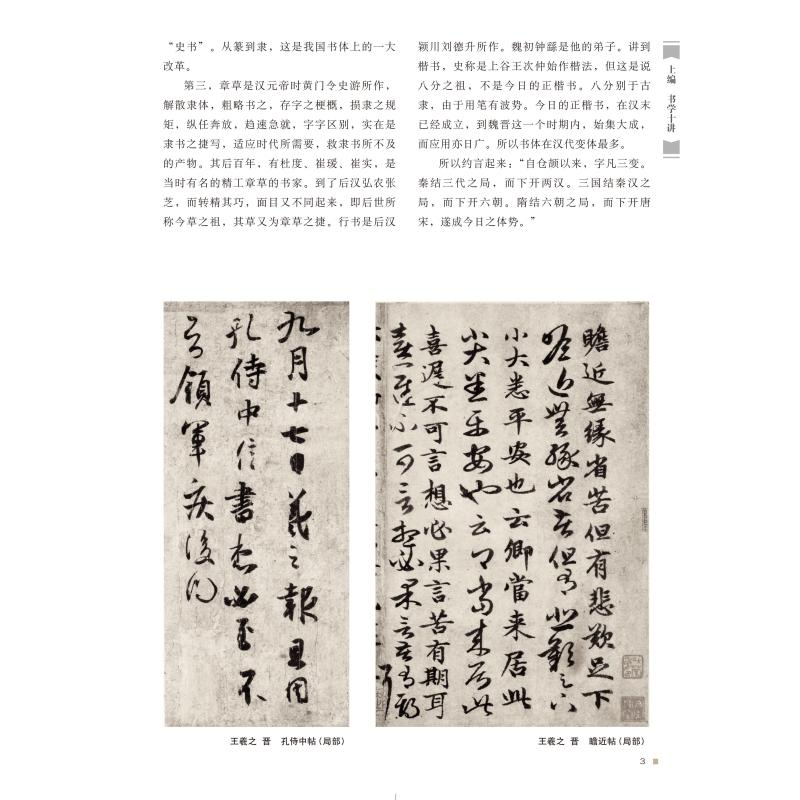 “史书”。从篆到隶，这是我国书体上的一大
改革。
第三，章草是汉元帝时黄门令史游所作，
解散隶体，粗略书之，存字之梗概，损隶之规
矩，纵任奔放，趋速急就，字字区别，实在是
隶书之捷写，适应时代所需要，救隶书所不及
的产物。其后百年，有杜度、崔瑗、崔实，是
当时有名的精工章草的书家。到了后汉弘农张
芝，而转精其巧，面目又不同起来，即后世所
称今草之祖，其草又为章草之捷。行书是后汉
颍川刘德升所作。魏初钟繇是他的弟子。讲到
楷书，史称是上谷王次仲始作楷法，但这是说
八分之祖，不是今日的正楷书。八分别于古
隶，由于用笔有波势。今日的正楷书，在汉末
已经成立，到魏晋这一个时期内，始集大成，
而应用亦日广。所以书体在汉代变体最多。
所以约言起来：“自仓颉以来，字凡三变。
秦结三代之局，而下开两汉。三国结秦汉之
局，而下开六朝。隋结六朝之局，而下开唐
宋，遂成今日之体势。”
上编 书学十讲
九月十七日羲之報且因
孔侍中信書想必至不
知領軍疾後问
王羲之 晋 孔侍中帖（局部）
瞻近無緣省苦但有悲歎足下
小大悉平安也云卿當来居此
喜遲不可言想必果言苦有期耳
王羲之 晋 瞻近帖（局部）
3